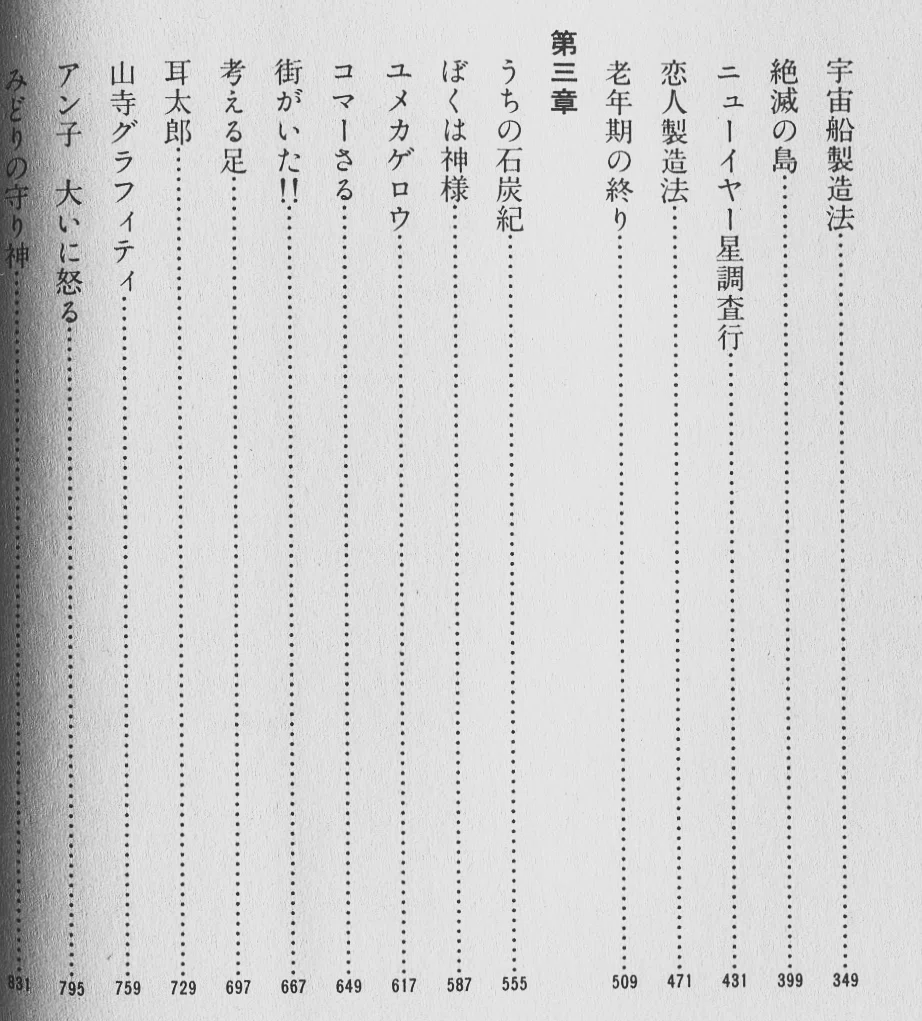 宇宙船製造法 349
絶滅の島 399
ニューイヤー星調査行 431
恋人製造法 471
老年期の終り 509
第三章
うちの石炭紀 555
ぼくは神様 587
ユメカゲロウ 617
コマーさる 649
街がいた!! 667
考える足 697
耳太郎 729
山寺グラフィティ 759
アン子 大いに怒る 795
みどりの守り神 831